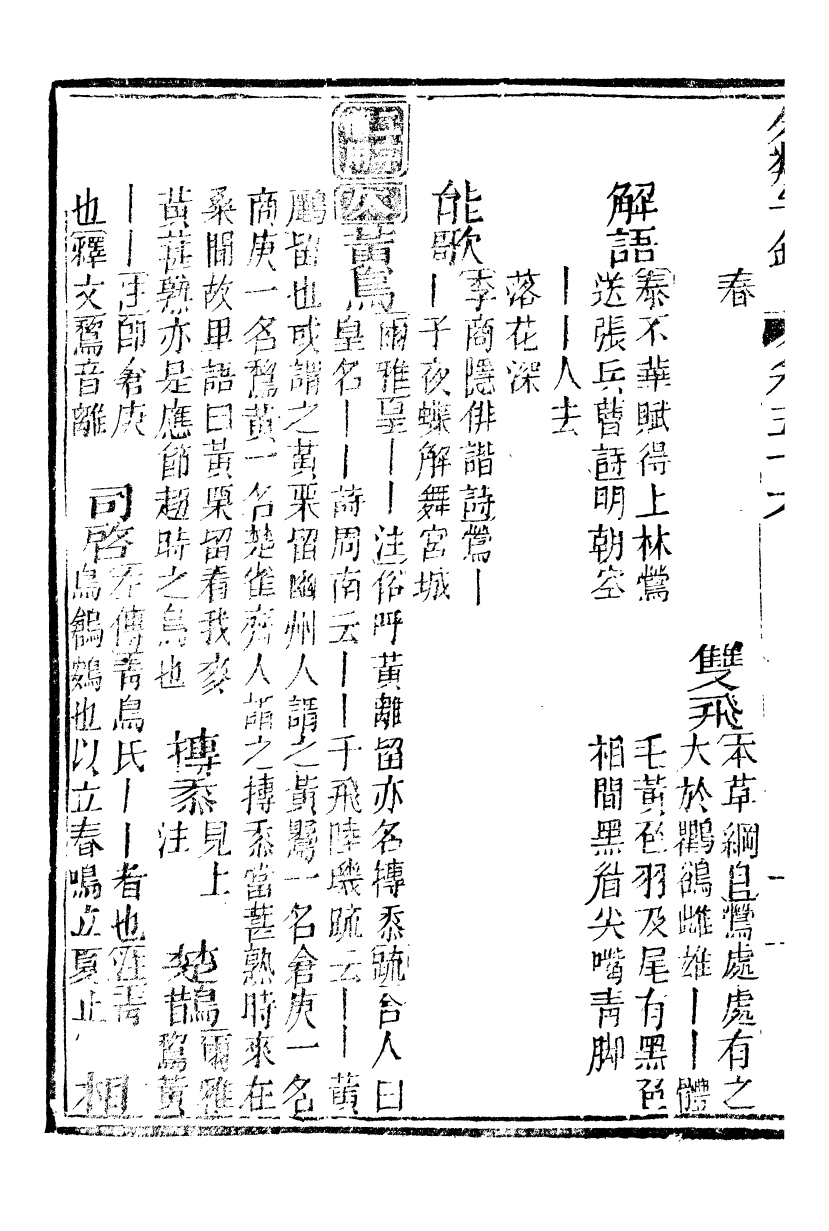 春
雙飛 本草綱目鶯處處有之
大於鸜鵒雌雄丨丨體
毛黃色羽及尾有黑色
相間黑眉尖嘴青脚
解語 泰不華賦得上林鶯
送張兵曹詩明朝空
丨丨人去
落花深
能歌 李商隱俳諧詩鶯丨
丨子夜蝶解舞宮城
黃鳥 爾雅皇丨丨注俗呼黃離留亦名搏黍疏舍人曰
皇名丨丨詩周南云丨丨于飛陸璣疏云丨丨黃
鸝留也或謂之黃栗留幽州人謂之黃鸎一名倉庚一名
商庚一名鵹黃一名楚雀齊人謂之搏黍當葚熟時來在
桑間故里語曰黃栗留看我麥
黃葚熟亦是應節趨時之鳥也
搏黍 見上
注
楚鳥 爾雅
鵹黃
丨丨注卽倉庚
也釋文鵹音離
司啓 左傳青鳥氏丨丨者也注青
鳥鶬鴳也以立春鳴立夏止
相